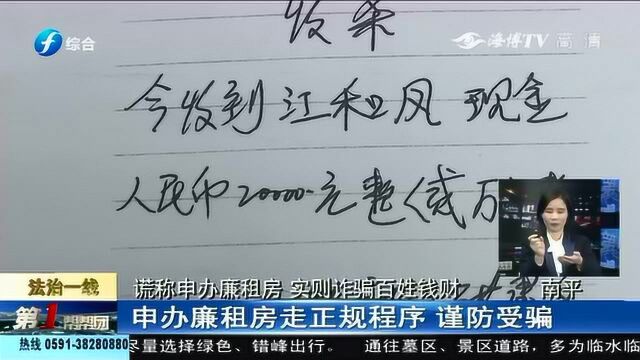 综合
海博TV 高清
收条
今收到江和风 现金
人民币20000.元整(贰万
法治一线
谎称申办廉租房 实则诈骗百姓钱财
南平
第1帮帮团
申办廉租房走正规程序 谨防受骗
热线 0591-38280880
尽量选择绿色、错峰出行。 通往墓区、景区道路,多为临水临